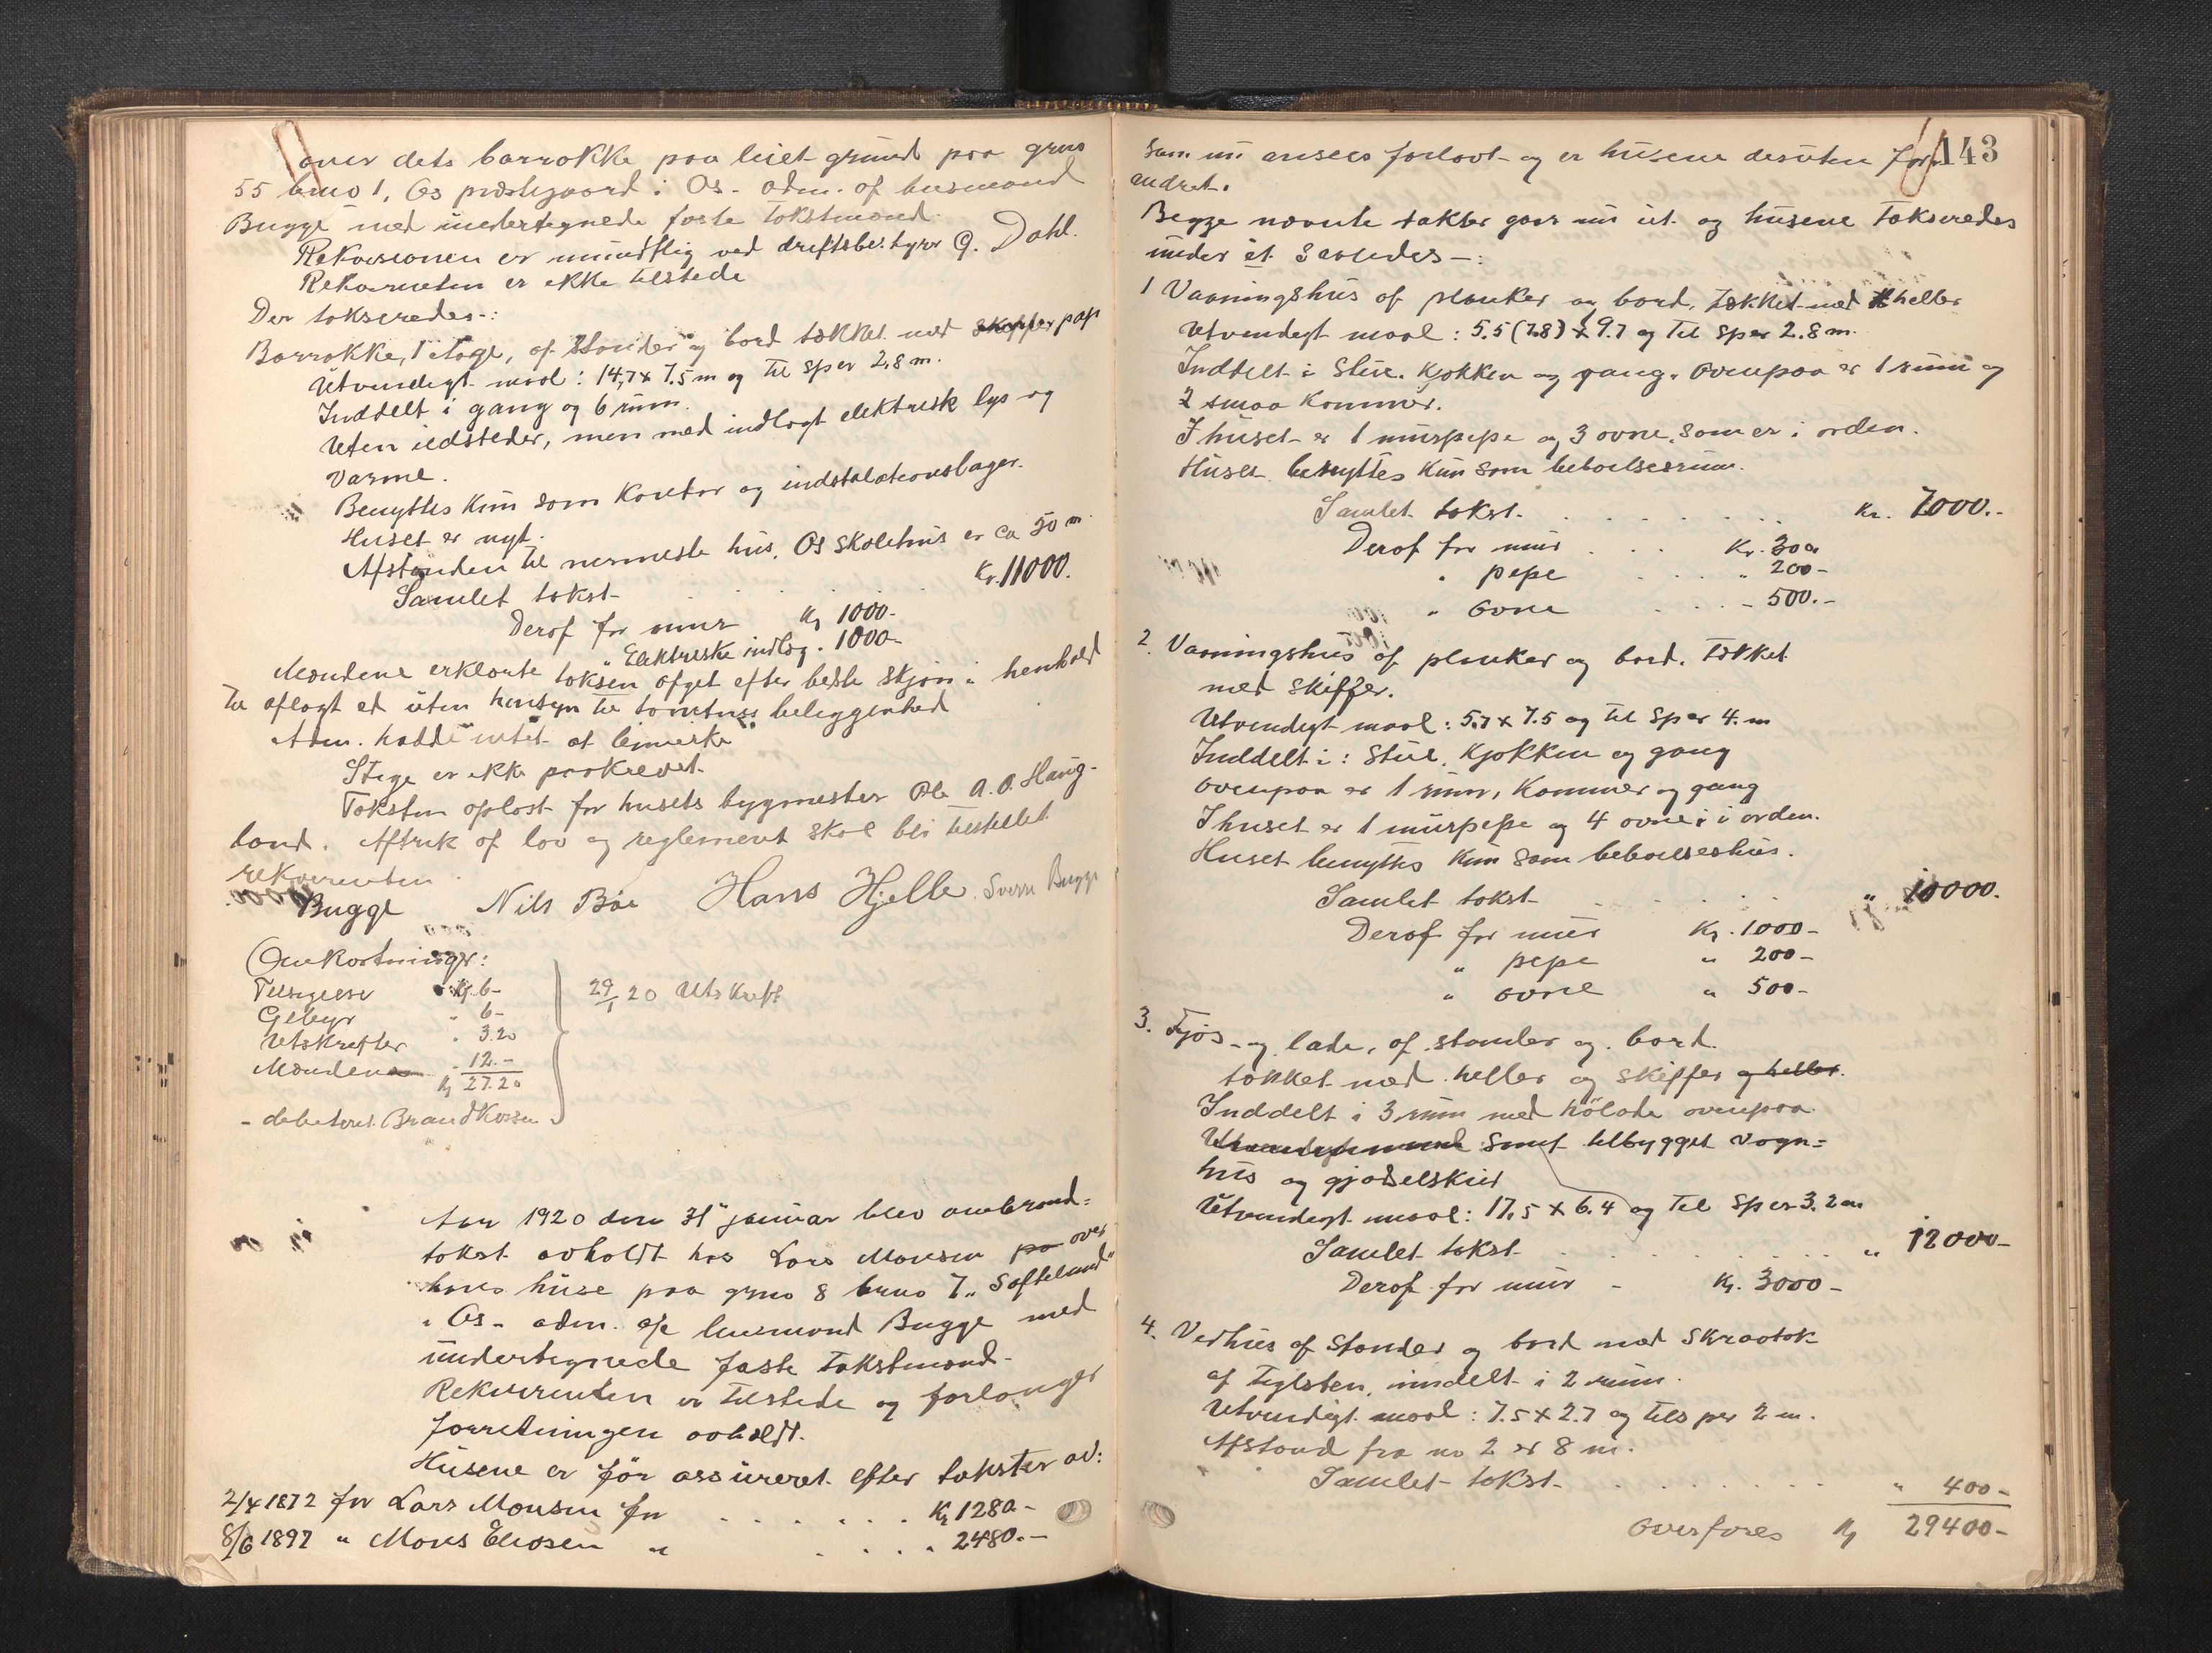 over dets barrakke paa leiet grund paa grno
55 brno 1, Os præstegaard i Os. adm. af lensmand
Bugge med undertegnede faste takstmænd.
Rekvisisionen er mundtlig ved driftsbestyrer G. Dahl.
Rekvirenten er ikke tilstede
Der takseredes:
Barrakke, 1 etage, af stander og bord tækket med skiffer pap
Utvendigt maal: 14,7 x 7.5 m og til sper 2,8 m.
Inddelt i gang og 6 rum.
Uten ildsteder, men med indlagt elektrisk lys og
varme.
Benyttes kun som kontor og indstalationslager.
Huset er nyt.
Afstanden til nærmeste hus, Os skolehus er ca 50 m.
Samlet takst . . . . . Kr. 11000.
Deraf for mur Kr 1000-
" Elektriske indlæg. 1000-
Mændene erklærte taksten afget efter beste skjøn i henhold
til aflagt ed uten hensyn til tomtens beliggenhed
Adm. hadde intet at bemerke
Stige er ikke paakrevet.
Taksten oplæst for husets bygmester Ole A. O. Haug-
land. Aftrik af lov og reglement skal bli tilstillet
rekvirenten.
Bugge Nils Bøe Hans Hjelle Sverre Bugge
Omkostninger:
Tilsigelse Kr. 6-
Gebyr " 6-
Utskrifter " 3.20
Mændene " 12.-
Kr 27.20
- debiteret Brandkassen
29/1 20 Utskrift
Aar 1920 den 31" januar blev ombrand-
takst avholdt hos Lars Monsen pa over
hans huse paa grno 8 brno 7 "Søfteland"
i Os - adm. af lensmand Bugge med
undertegnede faste takstmænd.
Rekvirenten er tilstede og forlanger
forretningen avholdt.
Husene er før assureret efter takster av:
2/4 1872 for Lars Monsen for . . . . . . Kr 1280-
8/6 1897 " Mons Eliasen " . . . . 2480.-
143
som nu ansees forlavt og er husene desuten for-
andret.
Begge nævnte takster gaar nu ut og husene takseredes
under et saaledes:
1 Vaaningshus af planker og bord, tækket med heller
Utvendigt maal: 5.5 (7.8) x 9.7 og til sper 2.8 m.
Inddelt i Stue. Kjøkken og gang. ovenpaa er 1 rum og
2 smaa kammer.
I huset er 1 murpipe og 3 ovne, som er i orden.
Huset benyttes kun som beboelsesrum.
Samlet takst. . . . . . . . Kr. 7000.-
Deraf for mur . . . Kr. 300
" pipe . . . " 200-
" ovne . . . - 500.-
2. Vaaningshus af planker og bord. Tækket
med skiffer.
Utvendigt maal: 5.7 x 7.5 og til sper 4. m
Inddelt i: Stue, kjøkken og gang
ovenpaa er 1 rum, kammer og gang
I huset er 1 murpipe og 4 ovne i orden.
Huset benyttes kun som beboelseshus.
Samlet takst . . . . . " 10000.
Deraf for mur Kr. 1000-
" pipe " 200-
" ovne " 500-
3. Fjøs- og lade, af stander og bord.
tækket med heller og skiffer og heller.
Inddelt i 3 rum med hølade ovenpaa.
Utvendigt maal samt tilbygget vogn-
hus og gjødselskur
Utvendigt maal: 17,5 x 6.4 og til sper 3.2 m
Samlet takst . . . . . . . " 12000-
Deraf for mur - Kr. 3000-
4. Vedhus af stander og bord med skraatak
af teglsten, inndelt i 2 rum.
Utvendigt maal: 7.5 x 2.7 og til sper 2 m.
Afstand fra no 2 er 8 m.
Samlet takst . . . . . . . " 400-
Overføres Kr 29400-